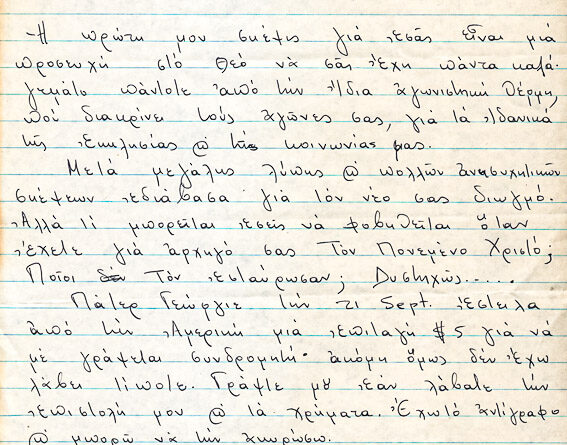 Ἡ πρώτη μου σκέψις γιά ἐσᾶς εἶναι μιά
προσευχή στό Θεό νά σᾶς ἔχη πάντα καλά,
γεμάτο πάντοτε ἀπό τήν ἴδια ἀγωνιστική θέρμη,
πού διακρίνει τούς ἀγῶνες σας, γιά τά ἰδανικά
τῆς ἐκκλησίας @ τῆς κοινωνίας μας.
Μετά μεγάλης λύπης @ πολλῶν ἀνησυχητικῶν
σκέψεων ἐδιάβασα γιά τόν νέο σας διωγμό.
Ἀλλά τί μπορεῖται ἐσεῖς νά φοβηθεῖται ὅταν
ἔχετε γιά ἀρχηγό σας Τόν Πονεμένο Χριστό;
Ποῖοι Τόν ἐσταύρωσαν; Δυστηχῶς.....
Πάτερ Γεώργιε τήν 21 Sept. ἔστειλα
ἀπό τήν Ἀμερική μια ἐπιταγή $5 γιά νά
μέ γράψεται συνδρομητή· ἀκόμη ὅμως δέν ἔχω
λάβει τίποτε. Γράψτε μου ἐάν λάβατε τήν
ἐπιστολή μου @ τά χρήματα. Ἔχω τό ἀντίγραφο
@ μπορῶ νά τήν ἀκυρώσω.